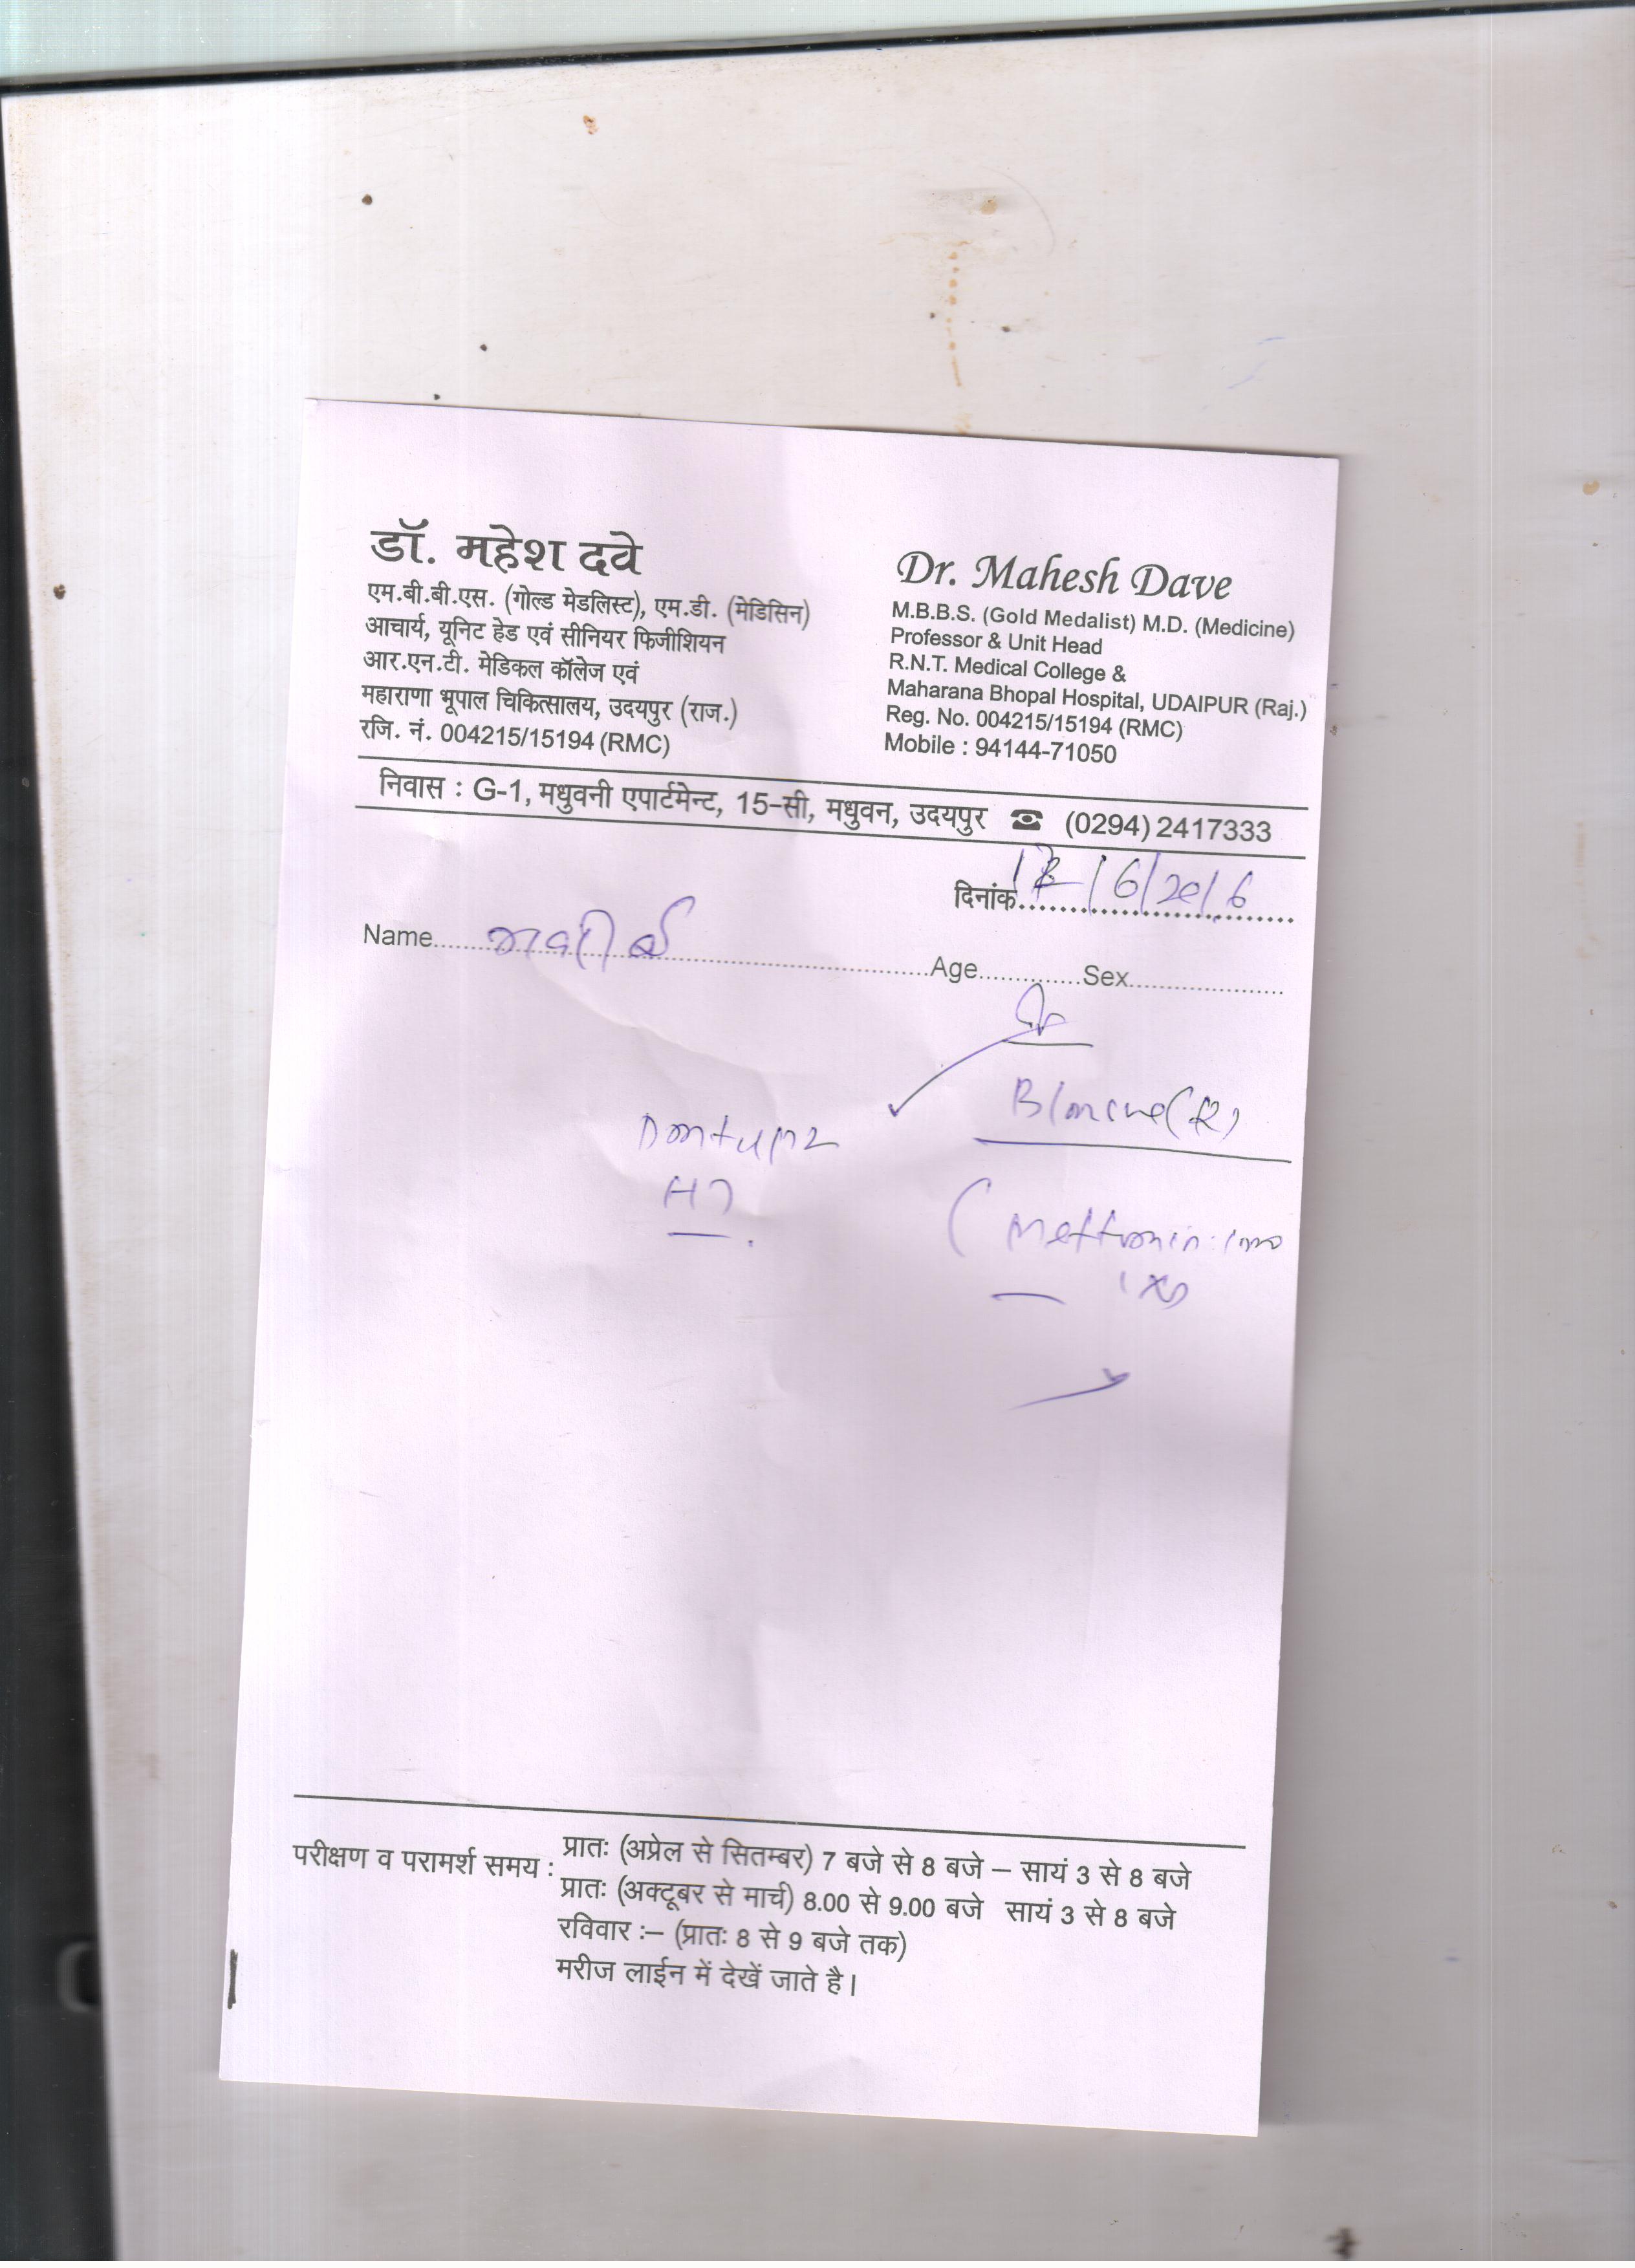 डॉ. महेश दवे
एम.बी.बी.एस. (गोल्ड मेडलिस्ट), एम.डी. (मेडिसिन)
आचार्य, यूनिट हेड एवं सीनियर फिजीशियन
आर.एन.टी. मेडिकल कॉलेज एवं
महाराणा भूपाल चिकित्सालय, उदयपुर (राज.)
रजि. नं. 004215/15194 (RMC)
Dr. Mahesh Dave
M.B.B.S. (Gold Medalist) M.D. (Medicine)
Professor & Unit Head
R.N.T. Medical College &
Maharana Bhopal Hospital, UDAIPUR (Raj.)
Reg. No. 004215/15194 (RMC)
Mobile : 94144-71050
निवास : G-1, मधुवनी एपार्टमेन्ट, 15-सी, मधुवन, उदयपुर ☎ (0294) 2417333
दिनांक /6/2016
Name Age Sex
परीक्षण व परामर्श समय : प्रातः (अप्रेल से सितम्बर) 7 बजे से 8 बजे – सायं 3 से 8 बजे
प्रातः (अक्टूबर से मार्च) 8.00 से 9.00 बजे सायं 3 से 8 बजे
रविवार :– (प्रातः 8 से 9 बजे तक)
मरीज लाईन में देखें जाते है।